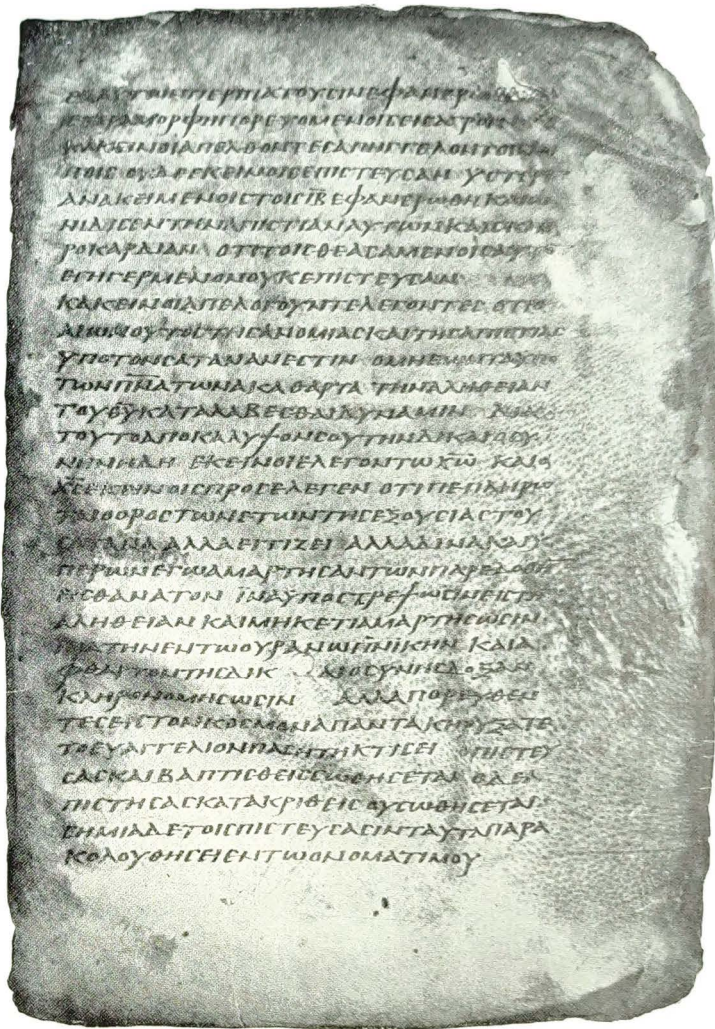 ΕΞ ΑΥΤΩΝ ΠΕΡΙΠΑΤΟΥCΙΝ ΕΦΑΝΕΡΩΘΗ
ΕΤΕΡΑ ΜΟΡΦΗ ΠΟΡΕΥΟΜΕΝΟΙC ΕΙC ΑΓΡΟΝ
ΚΑΚΕΙΝΟΙ ΑΠΕΛΘΟΝΤΕC ΑΠΗΓΓΕΛΟΝ ΤΟΙC ΛΟΙ
ΠΟΙC ΟΥΔΕ ΕΚΕΙΝΟΙC ΕΠΙCΤΕΥCΑΝ ΥCΤΕΡΟΝ
ΑΝΑΚΕΙΜΕΝΟΙC ΤΟΙC ΙΒ̅ ΕΦΑΝΕΡΩΘΗ ΚΑΙ ΩΝΙ
ΔΙCΕΝ ΤΗΝ ΑΠΙCΤΙΑΝ ΑΥΤΩΝ ΚΑΙ CΚΛΗ
ΡΟΚΑΡΔΙΑΝ ΟΤΙ ΤΟΙC ΘΕΑCΑΜΕΝΟΙC ΑΥΤΟΝ
ΕΓΗΓΕΡΜΕΝΟΝ ΟΥΚ ΕΠΙCΤΕΥCΑΝ
ΚΑΚΕΙΝΟΙ ΑΠΕΛΟΓΟΥΝΤΕ ΛΕΓΟΝΤΕC ΟΤΙ Ο
ΑΙΩΝ ΟΥΤΟC ΤΗC ΑΝΟΜΙΑC ΚΑΙ ΤΗC ΑΠΙCΤΙΑC
ΥΠΟ ΤΟΝ CΑΤΑΝΑΝ ΕCΤΙΝ Ο ΜΗ ΕΩΝ ΤΑ ΥΠΟ
ΤΩΝ ΠΝ̅ΑΤΩΝ ΑΚΑΘΑΡΤΑ ΤΗΝ ΑΛΗΘΕΙΑΝ
ΤΟΥ Θ̅Υ̅ ΚΑΤΑΛΑΒΕCΘΑΙ ΔΥΝΑΜΙΝ ΔΙΑ
ΤΟΥΤΟ ΑΠΟΚΑΛΥΨΟΝ CΟΥ ΤΗΝ ΔΙΚΑΙΟCΥ
ΝΗΝ ΗΔΗ ΕΚΕΙΝΟΙ ΕΛΕΓΟΝ ΤΩ Χ̅Ω̅ ΚΑΙ Ο
Χ̅C̅ ΕΚΕΙΝΟΙC ΠΡΟCΕΛΕΓΕΝ ΟΤΙ ΠΕΠΛΗΡΩ
ΤΑΙ Ο ΟΡΟC ΤΩΝ ΕΤΩΝ ΤΗC ΕΞΟΥCΙΑC ΤΟΥ
CΑΤΑΝΑ ΑΛΛΑ ΕΓΓΙΖΕΙ ΑΛΛΑ ΔΙΝΑ ΚΑΙ Υ
ΠΕΡ ΩΝ ΕΓΩ ΑΜΑΡΤΗCΑΝΤΩΝ ΠΑΡΕΔΟΘΗΝ
ΕΙC ΘΑΝΑΤΟΝ ΪΝΑ ΫΠΟCΤΡΕΨΩCΙΝ ΕΙC ΤΗΝ
ΑΛΗΘΕΙΑΝ ΚΑΙ ΜΗΚΕΤΙ ΑΜΑΡΤΗCΩCΙΝ
ΪΝΑ ΤΗΝ ΕΝ ΤΩ ΟΥΡΑΝΩ ΠΝ̅ΙΚΗΝ ΚΑΙ Α
ΦΘΑΡΤΟΝ ΤΗC ΔΙΚΑΙΟCΥΝΗC ΔΟΞΑΝ
ΚΛΗΡΟΝΟΜΗCΩCΙΝ ΑΛΛΑ ΠΟΡΕΥΘΕΝ
ΤΕC ΕΙC ΤΟΝ ΚΟCΜΟΝ ΑΠΑΝΤΑ ΚΗΡΥΞΑΤΕ
ΤΟ ΕΥΑΓΓΕΛΙΟΝ ΠΑCΗ ΤΗ ΚΤΙCΕΙ Ο ΠΙCΤΕΥ
CΑC ΚΑΙ ΒΑΠΤΙCΘΕΙC CΩΘΗCΕΤΑΙ Ο ΔΕ Α
ΠΙCΤΗCΑC ΚΑΤΑΚΡΙΘΕΙC ΟΥ CΩΘΗCΕΤΑΙ
CΗΜΙΑ ΔΕ ΤΟΙC ΠΙCΤΕΥCΑCΙΝ ΤΑΥΤΑ ΠΑΡΑ
ΚΟΛΟΥΘΗCΕΙ ΕΝ ΤΩ ΟΝΟΜΑΤΙ ΜΟΥ